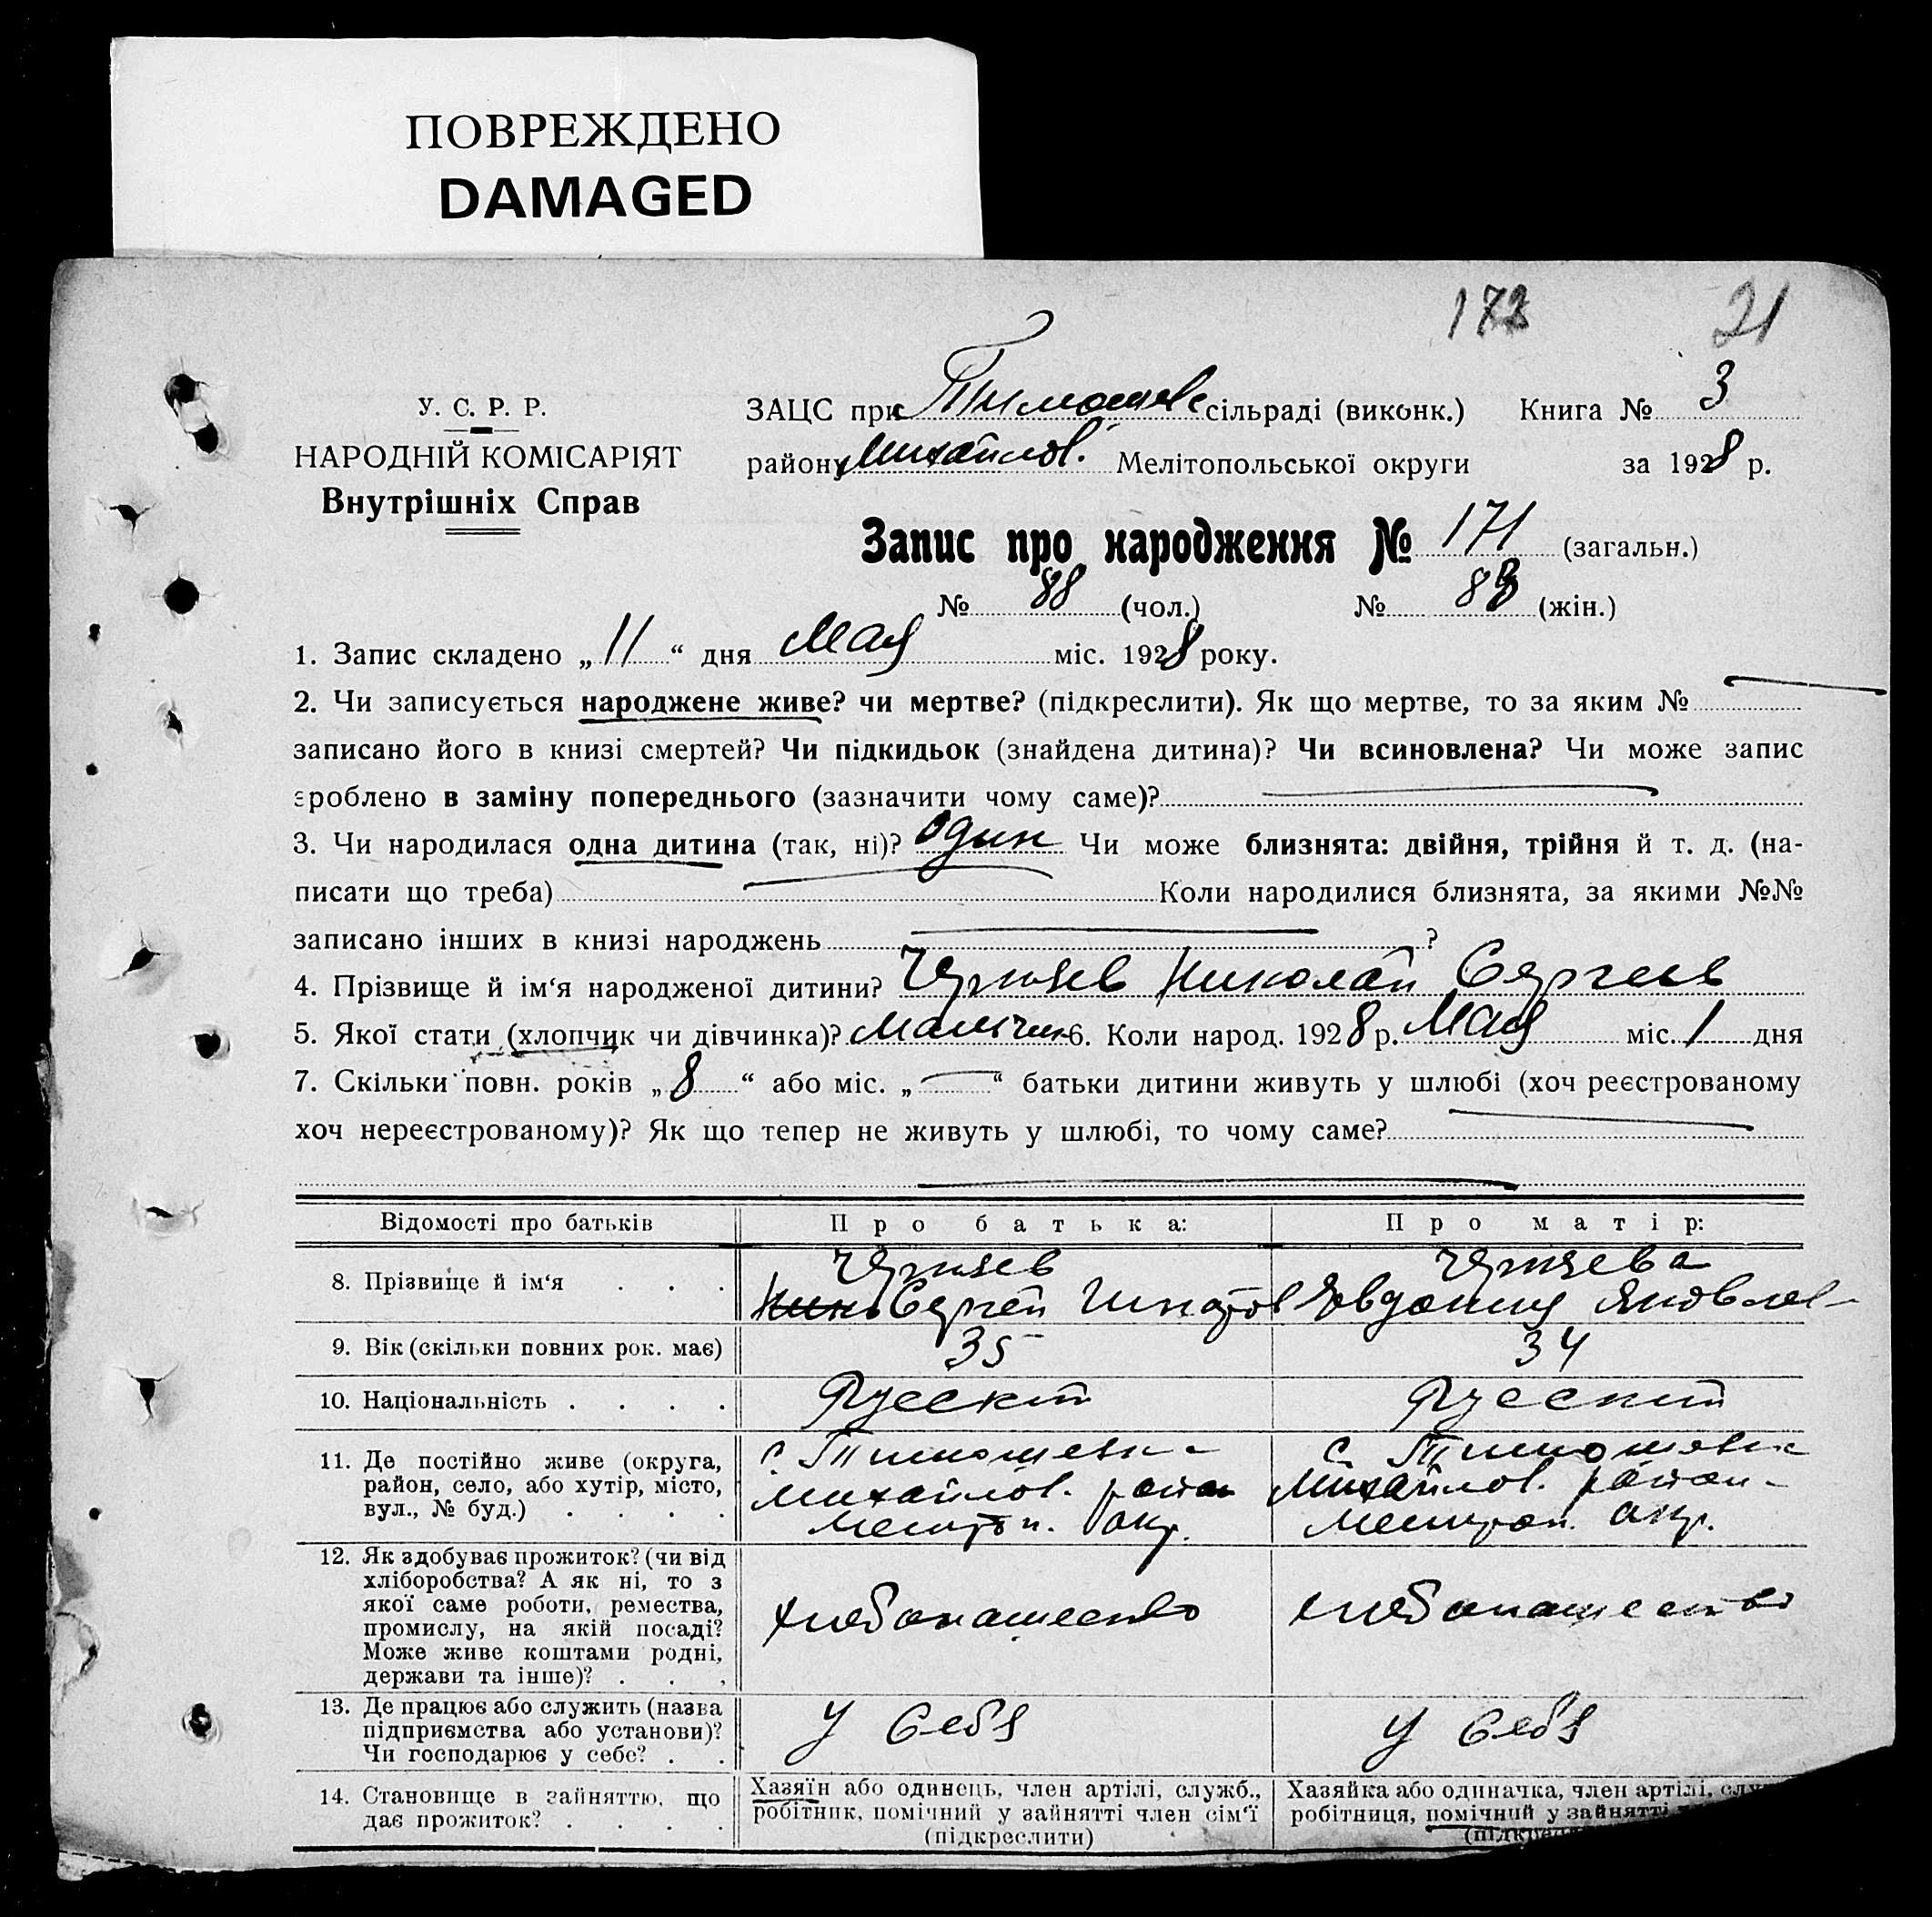 ПОВРЕЖДЕНО
DAMAGED
21
У. С. Р. Р.
НАРОДНІЙ КОМІСАРІЯТ
Внутрішніх Справ
ЗАЦС при Тимошев сільраді (виконк.) Книга № 3
району Михайлов. Мелітопольської округи за 1928 р.
Запис про народження № 171 (загальн.)
№ 88 (чол.) № 83 (жін.)
1. Запис складено „ 11 “ дня Мая міс. 1928 року.
2. Чи записується народжене живе? чи мертве? (підкреслити). Як що мертве, то за яким №
записано його в книзі смертей? Чи підкидьок (знайдена дитина)? Чи всиновлена? Чи може запис
зроблено в заміну попереднього (зазначити чому саме)?
3. Чи народилася одна дитина (так, ні)? один Чи може близнята: двійня, трійня й т. д. (на-
писати що треба) Коли народилися близнята, за якими №№
записано інших в книзі народжень ?
4. Прізвище й ім‘я народженої дитини? Николай Сергеев
5. Якої стати (хлопчик чи дівчинка)? Мальчик 6. Коли народ. 1928 р. Мая міс. 1 дня
7. Скільки повн. років „ 8 “ або міс. „ — “ батьки дитини живуть у шлюбі (хоч реєстрованому
хоч нереєстрованому)? Як що тепер не живуть у шлюбі, то чому саме?
Відомості про батьків
Про батька:
Про матір:
8. Прізвище й ім‘я . . .
Сергей
Евдокия Яковлев
9. Вік (скільки повних рок. має)
35
34
10. Національність . . . .
Русский
Русский
11. Де постійно живе (округа,
район, село, або хутір, місто,
вул., № буд.) . . . .
с. Тимошевка
Михайлов. район
Мелитоп. окр.
с. Тимошевка
Михайлов. район
Мелитоп. окр.
12. Як здобуває прожиток? (чи від
хліборобства? А як ні, то з
якої саме роботи, ремества,
промислу, на якій посаді?
Може живе коштами родні,
держави та інше)? . . .
хлебопашество
хлебопашество
13. Де працює або служить (назва
підприємства або установи)?
Чи господарює у себе? . .
У Себя
У Себя
14. Становище в зайняттю, що
дає прожиток? . . . .
Хазяїн або одинець, член артілі, служб.,
робітник, помічний у зайнятті член сім‘ї
(підкреслити)
Хазяйка або одиначка, член артілі, слу
робітниця, помічний у зайнятті
(підкре